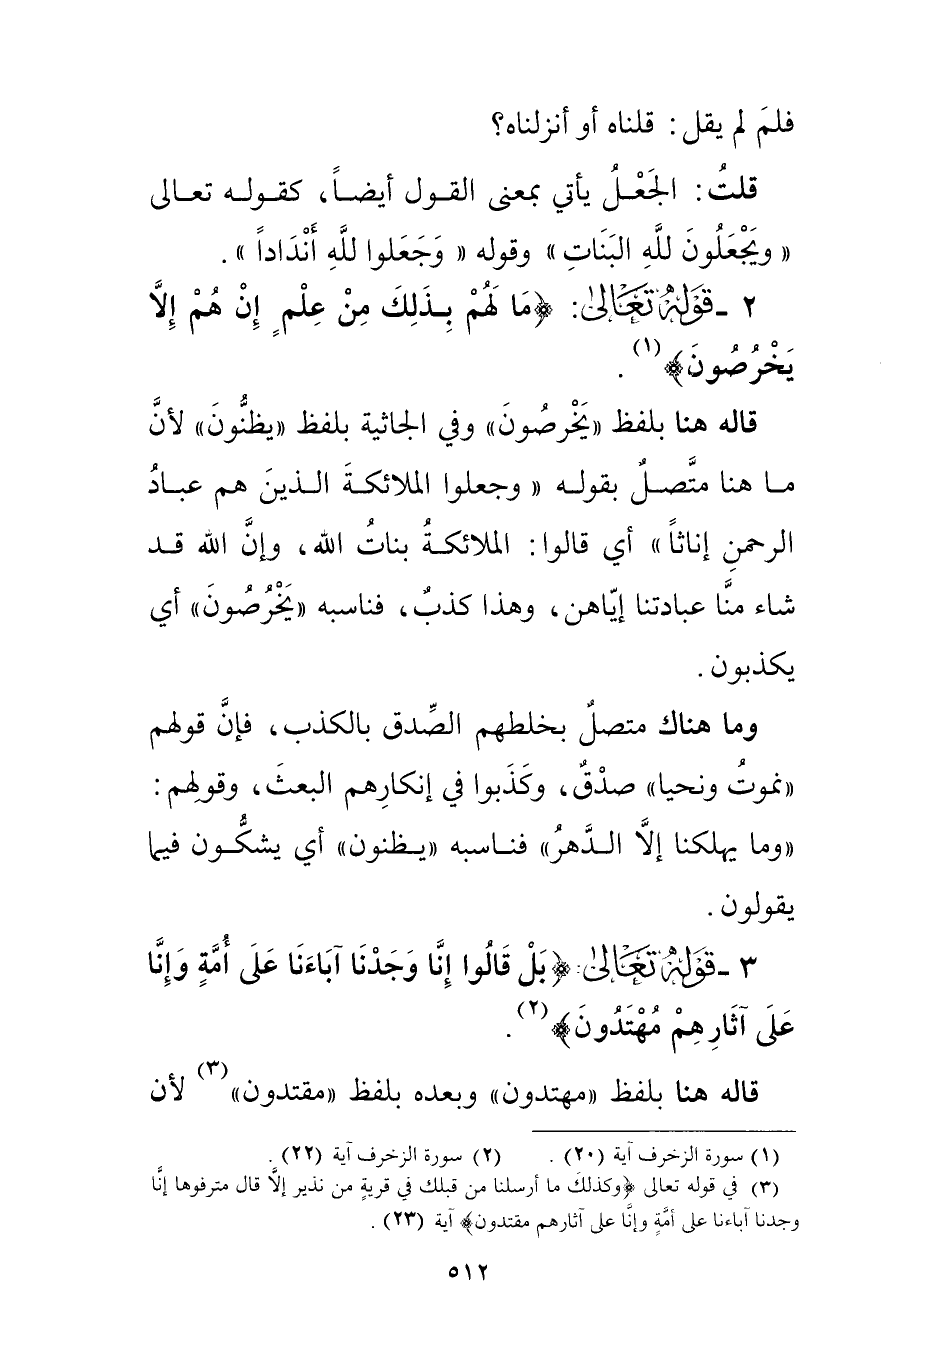 فلمَ لم يقل: قلناه أو أنزلناه؟
قلتُ: الجَعْلُ يأتي بمعنى القول أيضاً، كقوله تعالى
« ويَجْعَلُونَ للَّهِ البَنَاتِ » وقوله « وَجَعَلوا للَّهِ أَنْدَاداً » .
٢ ـ قَوْلُهُ تَعَالَىٰ: ﴿مَا لَهُمْ بِذَلِكَ مِنْ عِلْمٍ إِنْ هُمْ إِلاَّ
يَخْرُصُونَ﴾(١) .
قاله هنا بلفظ «يَخْرصُونَ» وفي الجاثية بلفظ «يظنُّونَ» لأنَّ
ما هنا متَّصلٌ بقوله « وجعلوا الملائكةَ الذينَ هم عبادُ
الرحمنِ إناثاً » أي قالوا: الملائكةُ بناتُ الله، وإنَّ الله قد
شاء منَّا عبادتنا إيّاهن، وهذا كذبٌ، فناسبه «يَخْرُصُونَ» أي
يكذبون .
وما هناك متصلٌ بخلطهم الصِّدق بالكذب، فإنَّ قولهم
«نموتُ ونحيا» صدْقٌ، وكَذَبوا في إنكارِهم البعثَ، وقولِهم:
«وما يهلكنا إلاَّ الدَّهرُ» فناسبه «يظنون» أي يشكُّون فيما
يقولون .
٣ ـ قَوْلُهُ تَعَالَىٰ: ﴿بَلْ قَالُوا إِنَّا وَجَدْنَا آبَاءَنَا عَلَى أُمَّةٍ وَإِنَّا
عَلَى آثَارِهِمْ مُهْتَدُونَ﴾(٢) .
قاله هنا بلفظ «مهتدون» وبعده بلفظ «مقتدون»(٣) لأن
(١) سورة الزخرف آية (٢٠) . (٢) سورة الزخرف آية (٢٢) .
(٣) في قوله تعالى ﴿وكذلكَ ما أرسلنا من قبلك في قريةٍ من نذير إلاَّ قال مترفوها إنَّا
وجدنا آباءنا على أمَّةٍ وإنَّا على آثارهم مقتدون﴾ آية (٢٣) .
٥١٢